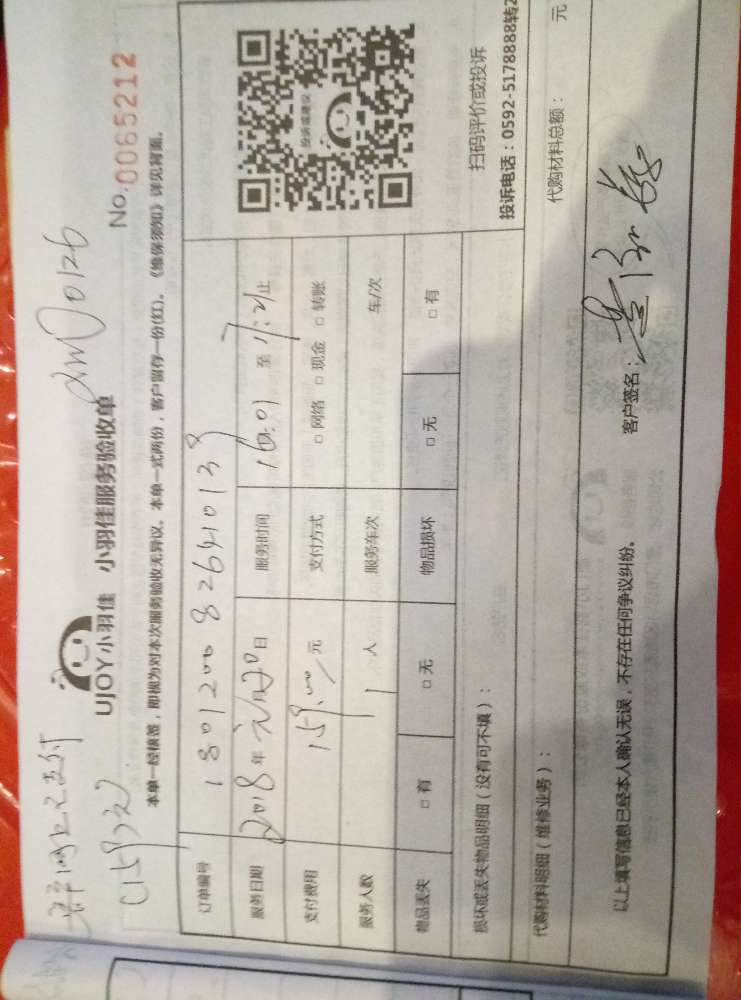 网上已支付
(159元)
UJOY小羽佳 小羽佳服务验收单
0126
No.0065212
本单一经核签，即视为对本次服务验收无异议。本单一式两份，客户留存一份(红)。《维保须知》详见背面。
订单编号 180120082641013
服务日期 2018年元月20日 服务时间 16:01 至 17:21止
支付费用 159.00元 支付方式 □网络 □现金 □转账
服务人数 1 人 服务车次 车/次
物品丢失 □有 □无 物品损坏 □无 □有
投诉或建议
扫码评价或投诉
投诉电话：0592-5178888转2
损坏或丢失物品明细（没有可不填）：
代购材料明细（维修业务）： 代购材料总额： 元
以上填写信息已经本人确认无误，不存在任何争议纠纷。 客户签名：